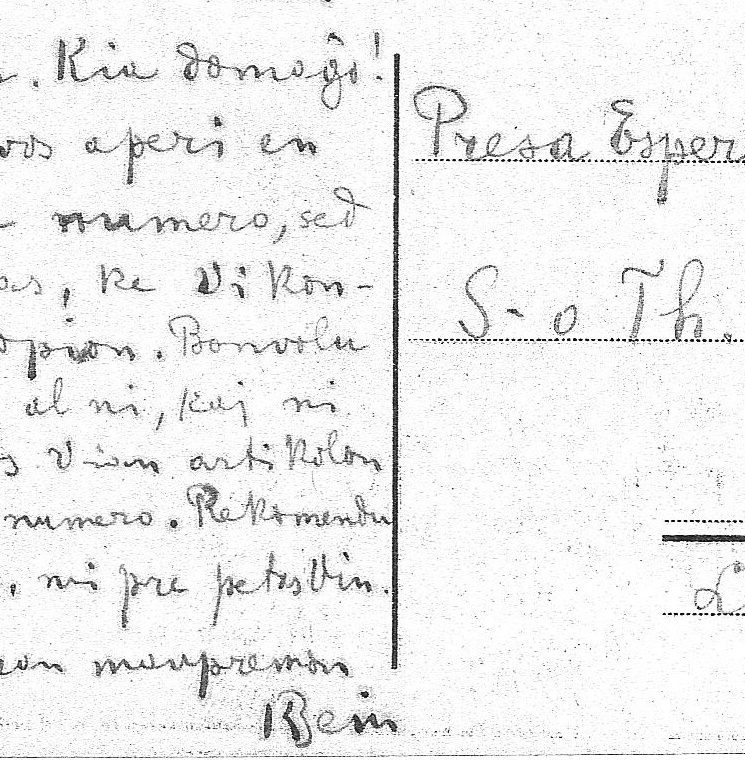 . Kia domaĝo!
vos aperi en
numero, sed
as, ke Vi kon-
opion. Bonvolu
al ni, kaj ni
s Vian artikolon
numero. Rekomendu
, mi pre petas Vin.
manpremon
Bein
Presa Esper
S-o Th.